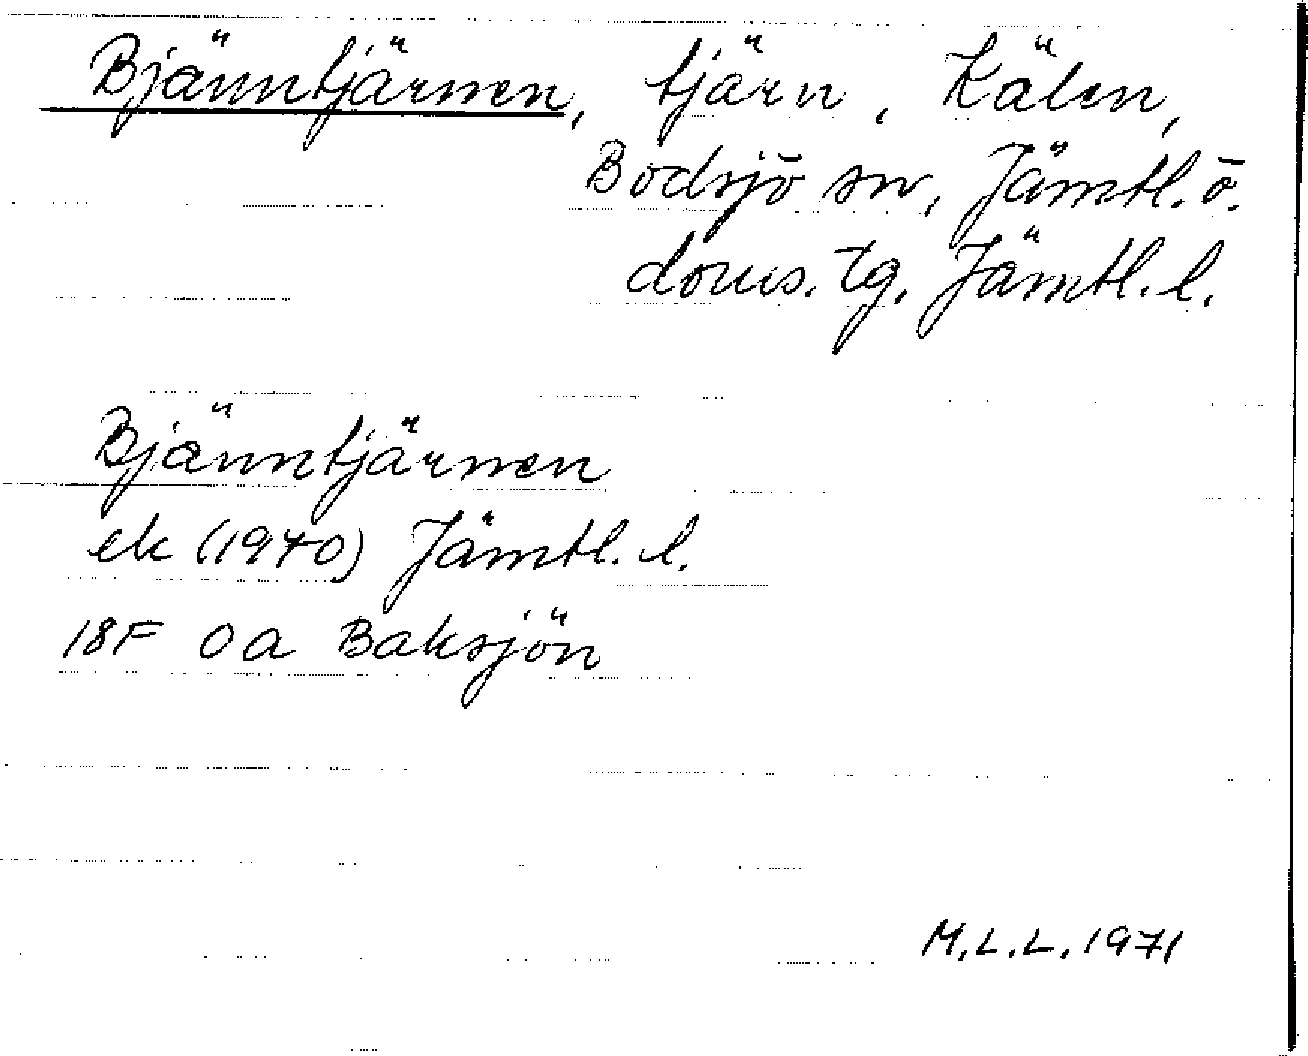 Bjänntjärnen, tjärn, Kälen,
Bodsjö sn, Jämtl. ö.
doms. tg, Jämtl. l.
Bjänntjärnen
ek (1970) Jämtl. l.
18F 0a Baksjön
M.L.L. 1971